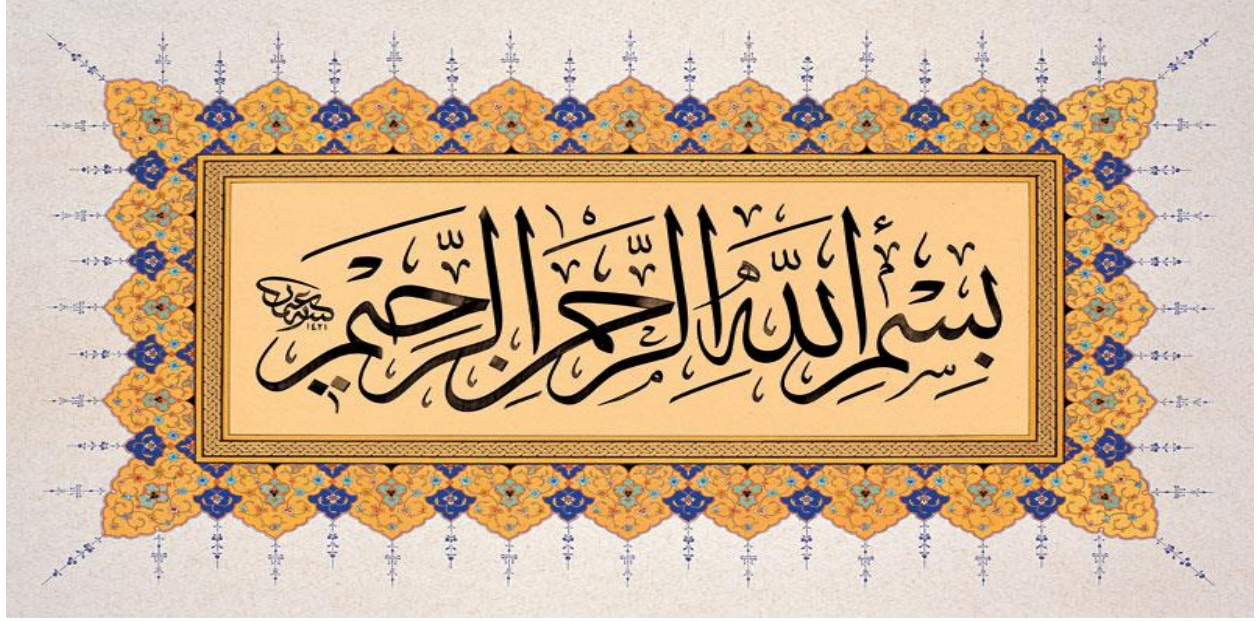 بِسْمِ اللَّهِ الرَّحْمٰنِ الرَّحِيمِ
١٤٢١